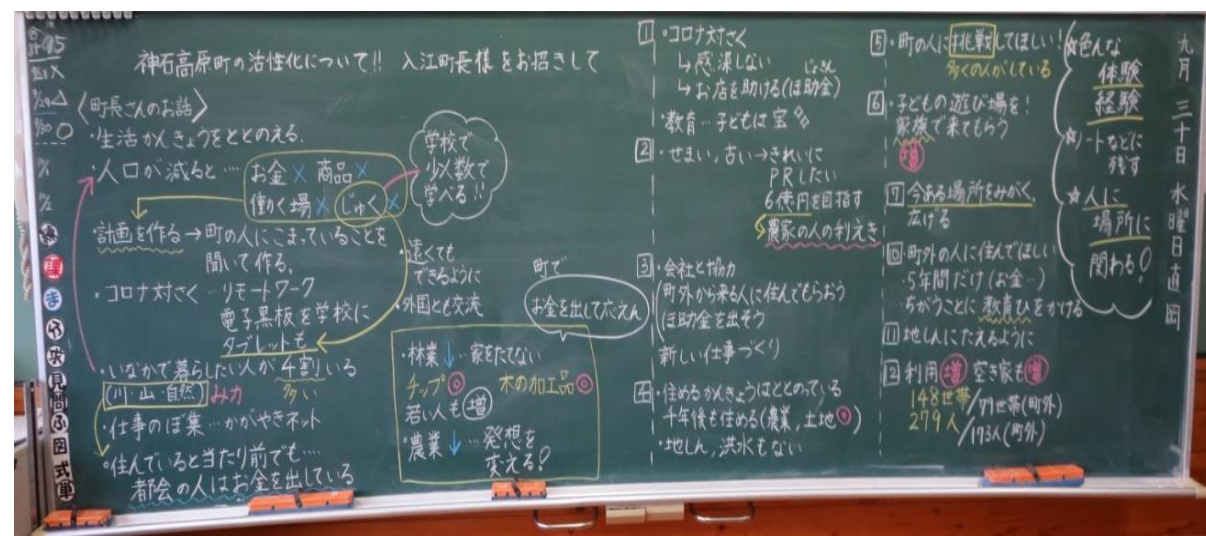 神石高原町の活性化について!! 入江町長様をお招きして
〈町長さんのお話〉
・生活かんきょうをととのえる.
・人口が減ると…
お金× 商品×
働く場× じゅく×
学校で
少人数で
学べる!!
計画を作る→町の人にこまっていることを
聞いて作る.
・コロナ対さく…リモートワーク
電子黒板を学校に
タブレットも
・遠くても
できるように
・外国とも交流
・いなかで暮らしたい人が4割いる
多い
川・山・自然 みカ
・仕事のぼ集…かがやきネット
・住んでいると当たり前でも…
都会の人はお金を出している
町で
お金を出して応えん
・林業↓…家をたてない
チップ◎ 木の加工品◎
若い人も増
・農業↓…発想を
変える!
1 ・コロナ対さく
↳感染しない
↳お店を助ける(ほ助金)
・教育…子どもは宝
2 ・せまい,古い→きれいに
PRしたい
6億円を目指す
農家の人の利えき
3 ・会社と協力
町外から来る人に住んでもらおう
ほ助金を出そう
新しい仕事づくり
4 ・住めるかんきょうはととのっている
千年後も住める(農業,土地◎)
・地しん,洪水もない
5 ・町の人に挑戦してほしい!
多くの人がしている
6 ・子どもの遊び場を!
家族で来てもらう
増
7 今ある場所をみがく,
広げる
10 ・町外の人に住んでほしい
・5年間だけ(お金…)
ちがうことに教育ひをかける
11 地しんにたえるように
12 利用増 空き家も増
148世帯/79世帯(町外)
279人/173人(町外)
☆色んな
体験
経験
☆ノートなどに
残す
☆人に
場所に
関わる!
九月三十日 水曜日 直岡